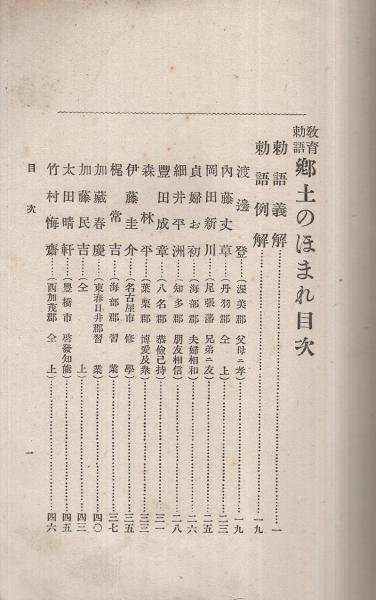 教育勅語 郷土のほまれ目次
勅語義解…………一
勅語例解…………一九
渡邊登…(渥美郡 父母ニ孝)…………一九
內藤丈草…(丹羽郡 仝上)…………二三
岡田新川…(尾張藩 兄弟ニ友)…………二五
貞婦お初…(海部郡 夫婦相和)…………二六
細井平洲…(知多郡 朋友相信)…………二八
豐田成章…(八名郡 恭儉己持)…………三一
森林平…(葉栗郡 博愛及衆)…………三三
伊藤圭介…(名古屋市 修學)…………三五
梶常吉…(海部郡 習業)…………三七
加藏春慶…(東春日井郡 習業)…………四〇
加藤民吉…(仝上)…………四三
太田晴軒…(豊橋市 啓發知能)…………四五
竹村悔齋…(西加茂郡 仝上)…………四六
目次
一